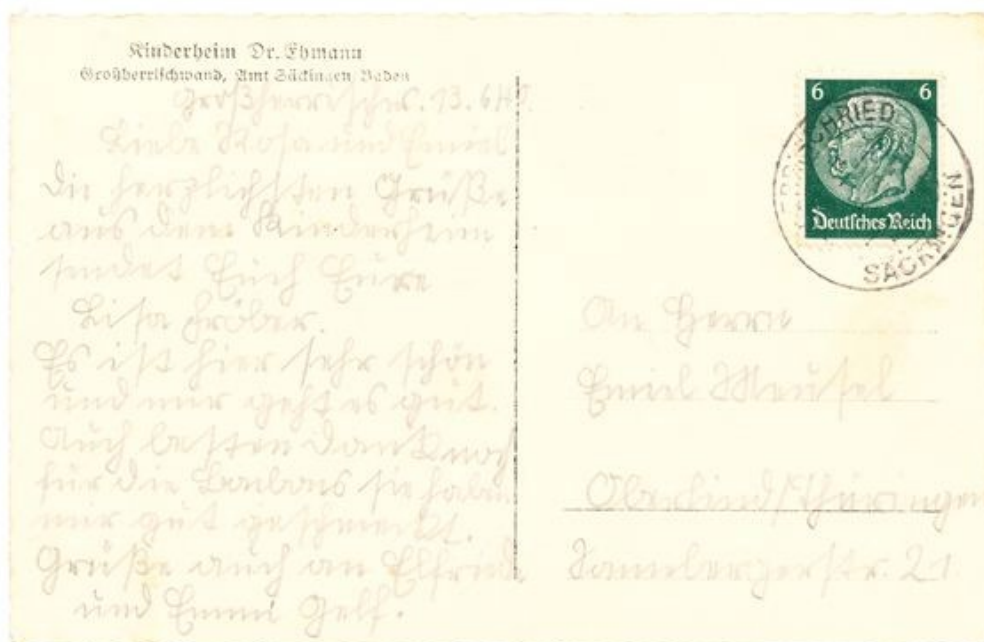 Kinderheim Dr. Ehmann
Großherrischwand, Amt Säckingen/Baden
Liebe Rosa und Emiel
Die herzlichsten Grüße
aus dem Kinderheim
sendet Euch Eure
Lisa Fröber.
Es ist hier sehr schön
und mir geht es gut.
Auch besten Dank noch
für die Bonbons sie haben
mir gut geschmeckt.
Grüße auch an Elfriede
und Emmi
6 6
Deutsches Reich
SÄCKINGEN
An Herrn
Emiel Meusel
Oberlind/Thüringen
21